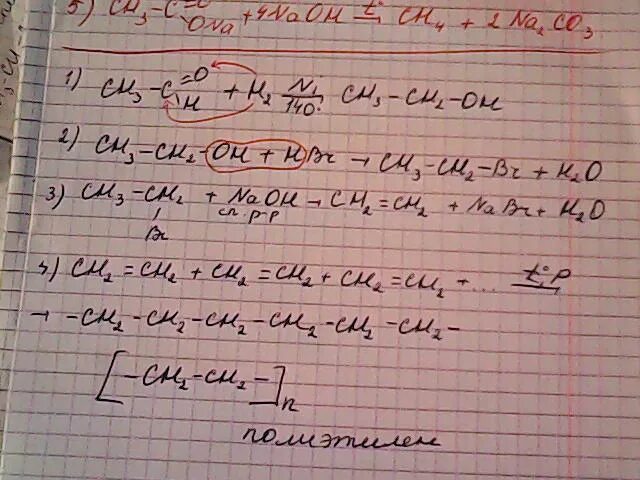 5) CH₃-C=O ONa +4NaOH t° CH₄ + 2 Na₂CO₃
1) CH₃-C=O H + H₂ Ni 140° CH₃-CH₂-OH
2) CH₃-CH₂-OH + HBr → CH₃-CH₂-Br + H₂O
3) CH₃-CH₂ + NaOH → CH₂=CH₂ + NaBr + H₂O
Br сп. р-р
4) CH₂=CH₂ + CH₂=CH₂ + CH₂=CH₂ + ... t°, P
→ -CH₂-CH₂-CH₂-CH₂-CH₂-CH₂-
[-CH₂-CH₂-]n
полиэтилен